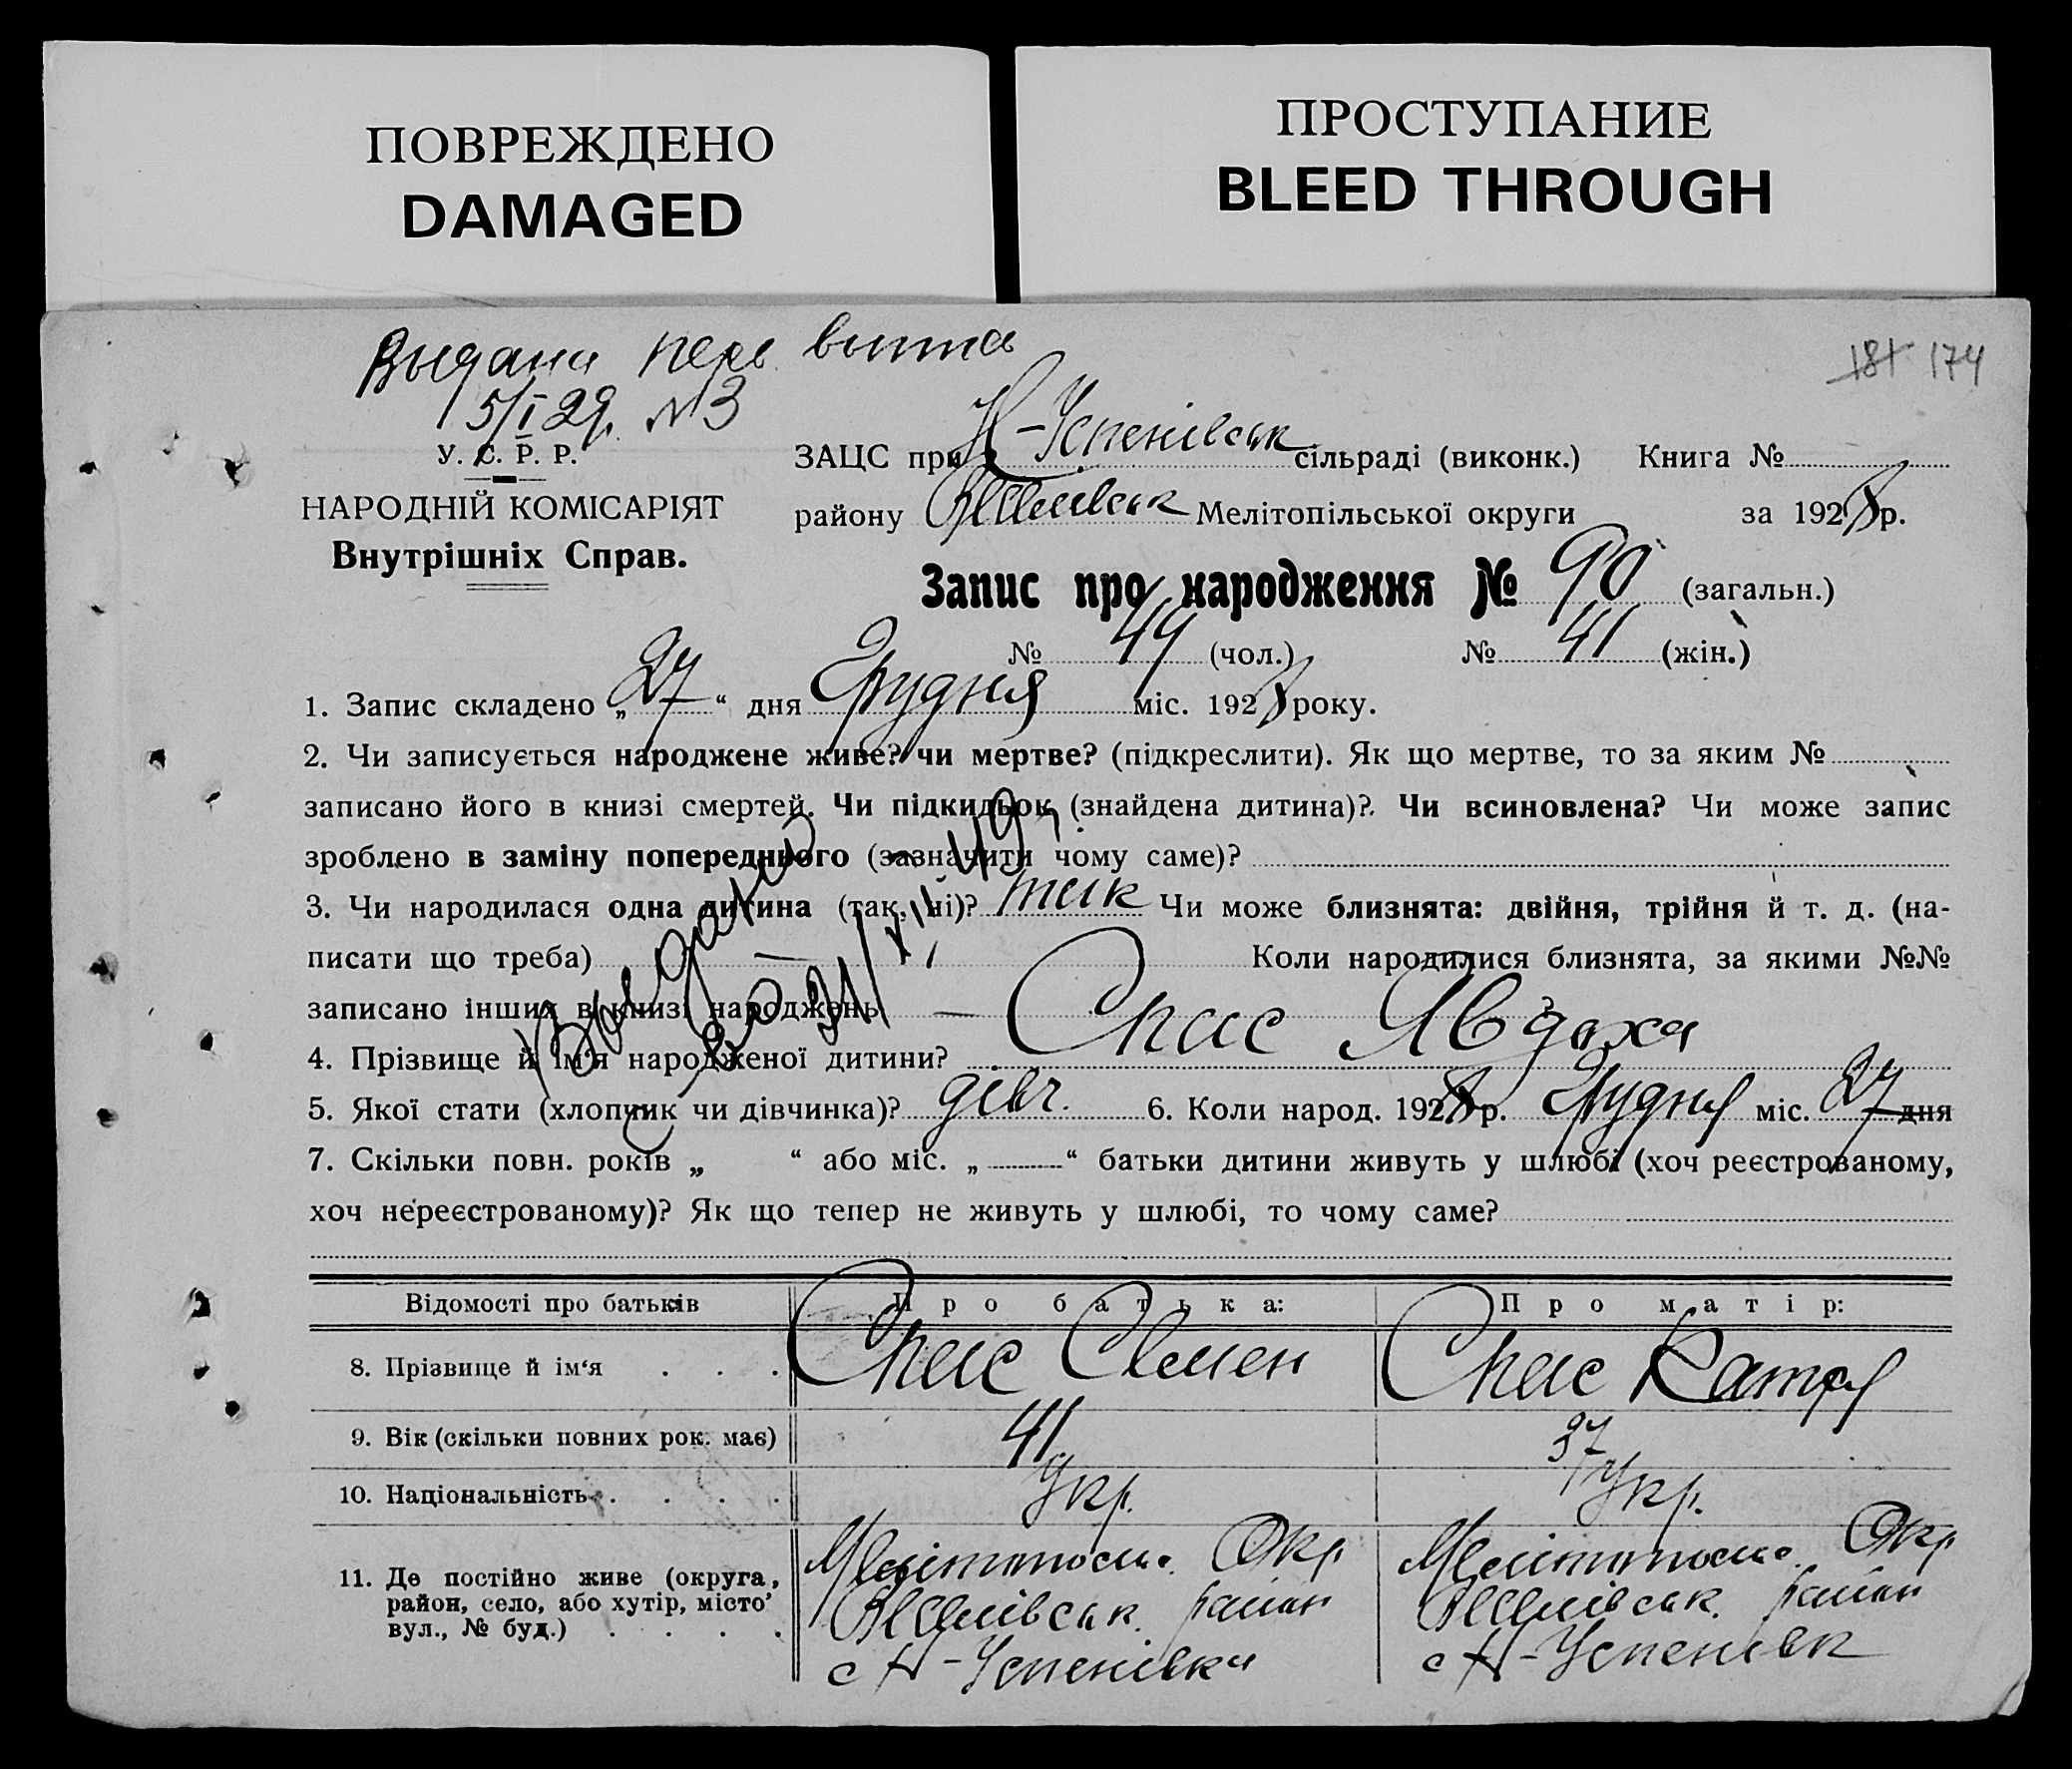 ПОВРЕЖДЕНО
DAMAGED
ПРОСТУПАНИЕ
BLEED THROUGH
Выдана
5/I 29р. №3
181 174
У. С. Р. Р.
НАРОДНІЙ КОМІСАРІЯТ
Внутрішніх Справ.
ЗАЦС при Н-Успенівськ сільраді (виконк.) Книга №
району Мелітопільської округи за 1928 р.
Запис про народження № 90 (загальн.)
№ 49 (чол.) № 41 (жін.)
1. Запис складено „27“ дня Грудня міс. 1928 року.
2. Чи записується народжене живе? чи мертве? (підкреслити). Як що мертве, то за яким №
записано його в книзі смертей. Чи підкидьок (знайдена дитина)? Чи всиновлена? Чи може запис
зроблено в заміну попереднього (зазначити чому саме)?
3. Чи народилася одна дитина (так, ні)? так Чи може близнята: двійня, трійня й т. д. (на-
писати що треба) — Коли народилися близнята, за якими №№
записано інших в книзі народжень —
4. Прізвище й ім'я народженої дитини? Спас Явдоха
5. Якої стати (хлопчик чи дівчинка)? дівч. 6. Коли народ. 1928 р. Грудня міс. 27 дня
7. Скільки повн. років „ “ або міс. „ “ батьки дитини живуть у шлюбі (хоч реєстрованому,
хоч нереєстрованому)? Як що тепер не живуть у шлюбі, то чому саме?
Відомості про батьків Про батька: Про матір:
8. Прізвище й ім‘я . . . Спас Семен Спас Катря
9. Вік (скільки повних рок. має) 41 37
10. Національність . . . . Укр. Укр.
11. Де постійно живе (округа,
район, село, або хутір, місто’
вул., № буд.) . . . .
Окр Окр
район район
с Н-Успенівки с Н-Успенівк